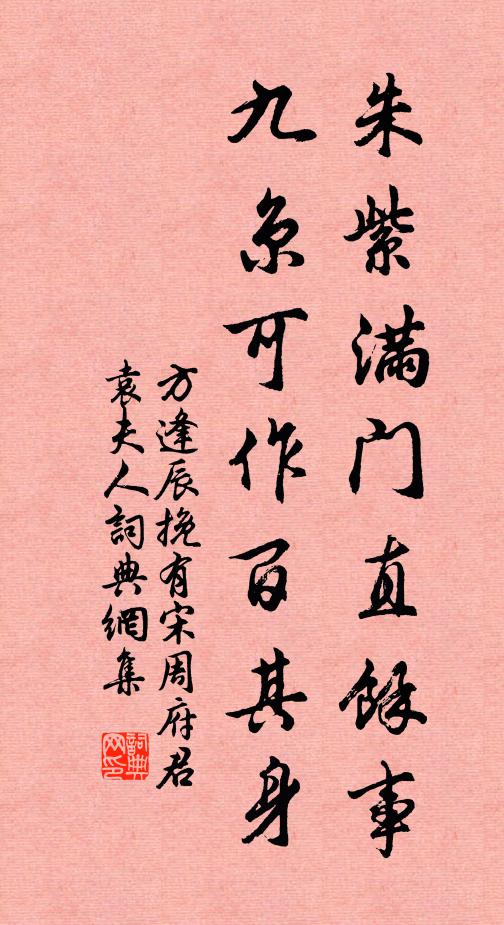 朱紫滿門直餘事
九原可作百其身
方逢辰挽有宋周府君
袁夫人詞典網集
詞典网印